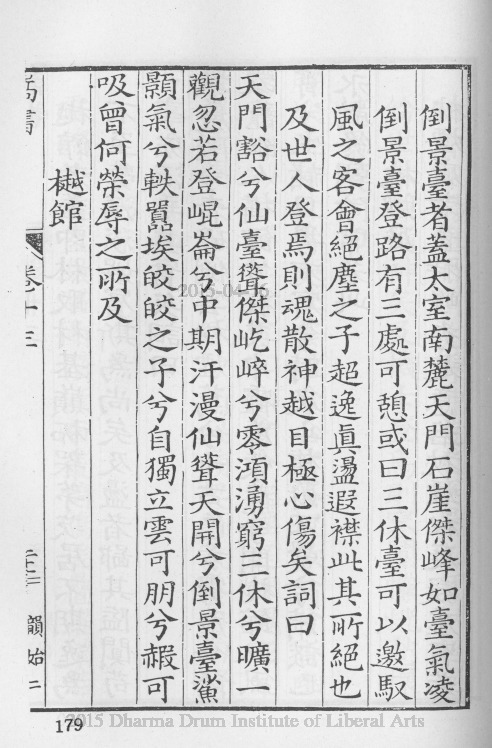 倒景臺者蓋太室南麓天門石崖傑峰如臺氣凌
倒景臺登路有三處可憩或曰三休臺可以邀馭
風之客會絕塵之子超逸真盪遐襟此其所絕也
及世人登焉則魂散神越目極心傷矣詞曰
天門豁兮仙臺聳傑屹崒兮零澒湧窮三休兮曠一
觀忽若登崐崙兮中期汗漫仙聳天開兮倒景臺鯊
顥氣兮軼囂埃皎皎之子兮自獨立雲可朋兮赮可
吸曾何榮辱之所及
樾館
嵩書
卷十三
韻始二
179
2015-04-16
2015 Dharma Drum Institute of Liberal Arts